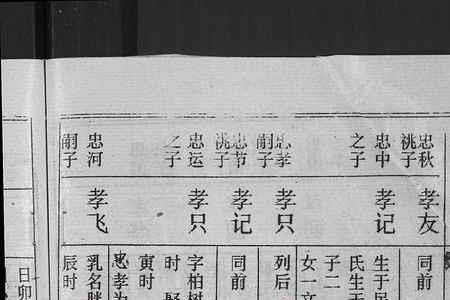 忠秋
祧子
孝友
同前
忠中
之子
孝记
生于
氏生
子二
女一文
忠孝
嗣子
孝只
列后
忠节
祧子
孝记
同前
忠运
之子
孝只
字柏树
时
寅时
忠孝为
忠河
嗣子
孝飞
乳名
辰时
日卯